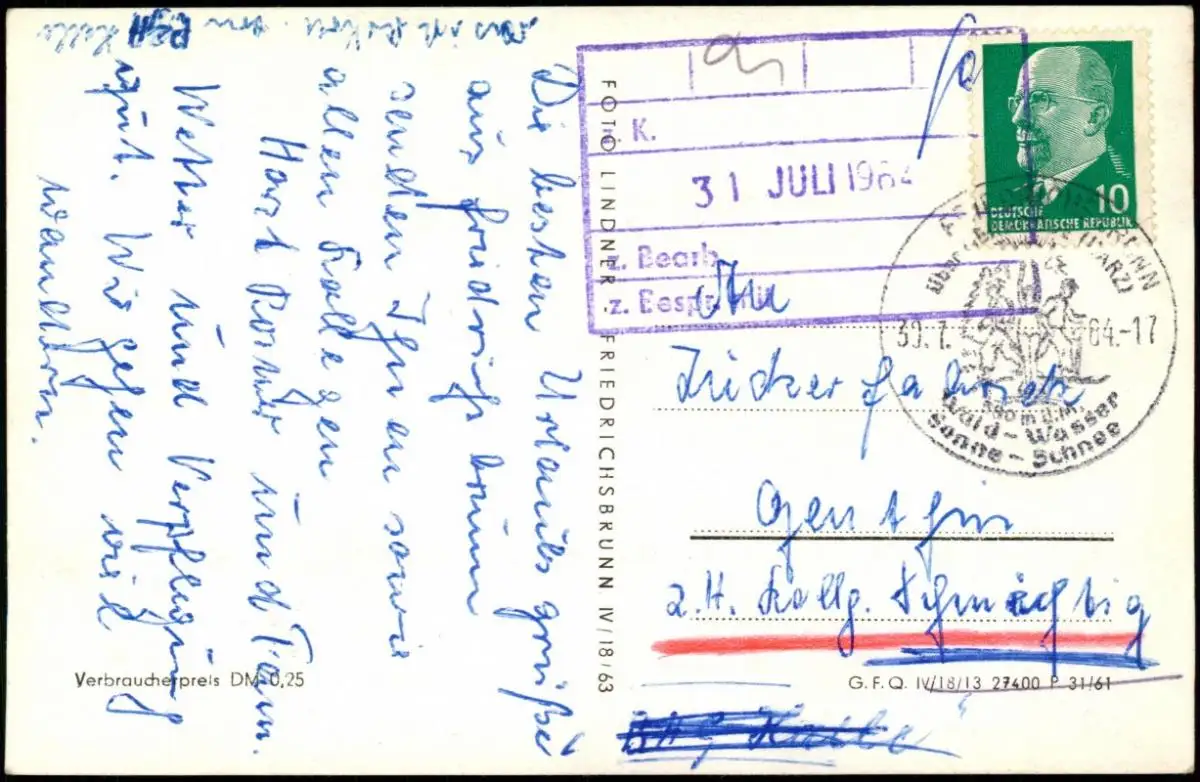 Die besten Urlaubsgrüße
aus Friedrichsbrunn
senden Ihnen sowie
allen Kollegen
Horst Porner und Fam.
Wetter und Verpflegung
gut. Wir gehen viel
wandern.
Verbraucherpreis DM 0,25
FOTO LINDNER FRIEDRICHSBRUNN IV/18/63
K.
31 JULI 1964
z. Bearb.
z. Bespr.
10
DEUTSCHE
DEMOKRATISCHE REPUBLIK
über (HARZ)
30.7. 64.-17
m ü.M.
Wald - Wasser
Sonne - Schnee
An
Zuckerfabrik
Genthin
z.H. Kollg. Schmächtig
G.F.Q. IV/18/13 27400 P 31/61